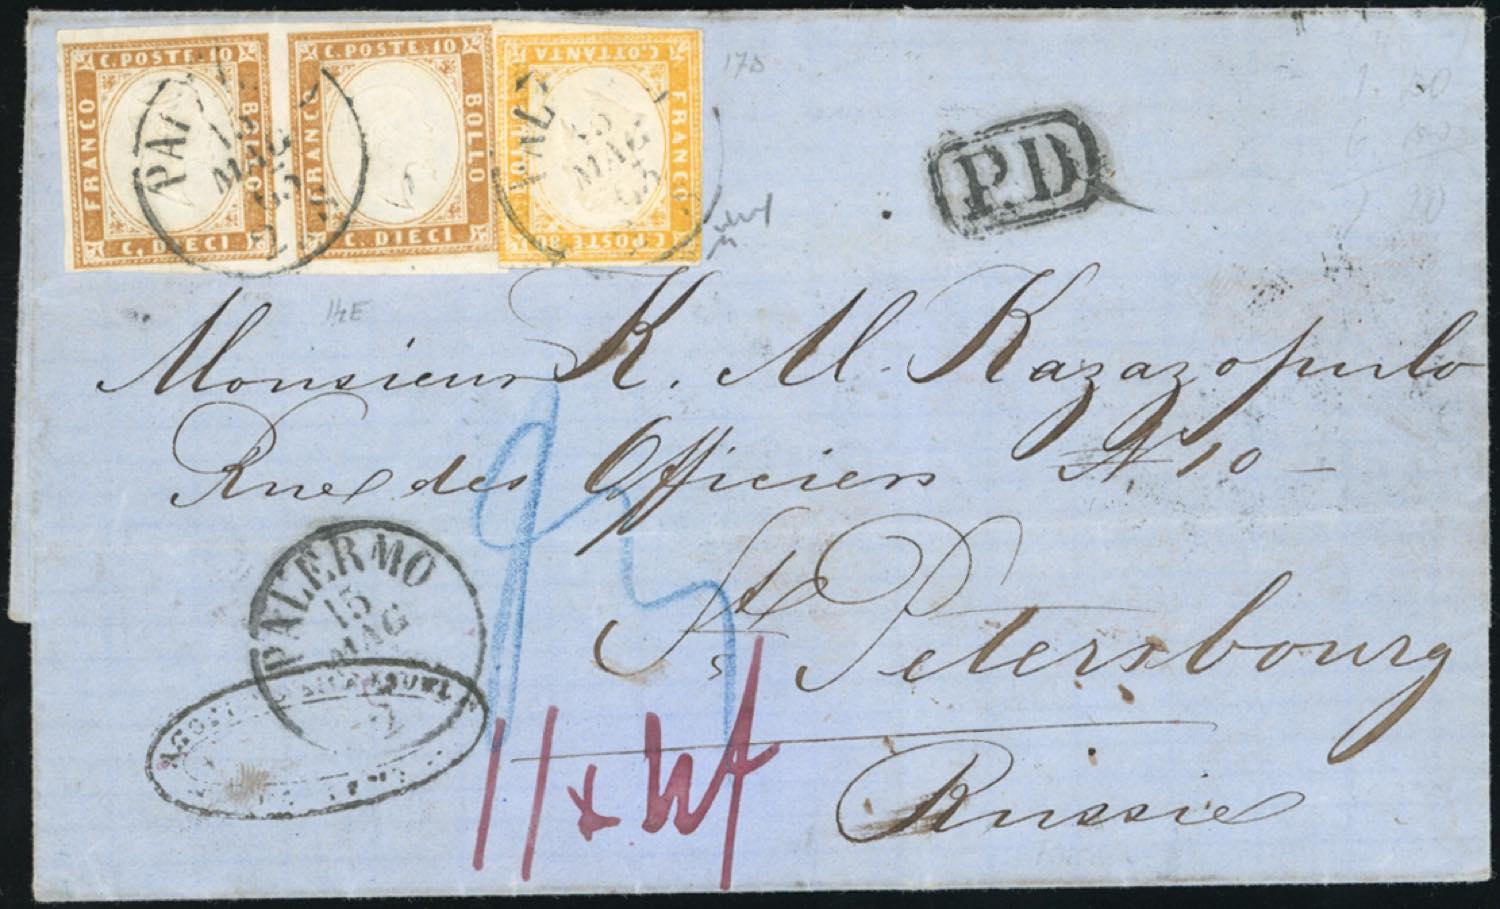 C. POSTE 10
FRANCO
BOLLO
C. DIECI
C. POSTE 10
FRANCO
BOLLO
C. DIECI
C. OTTANTA
FRANCO
BOLLO
C. POSTE 80
PAL
15
MAG
63
PAL
15
MAG
63
P.D.
17D
1½E
Monsieur K. M. Kazazopulo
Rue des Officiers N 10
St Petersbourg
Russie
PALERMO
15
MAG